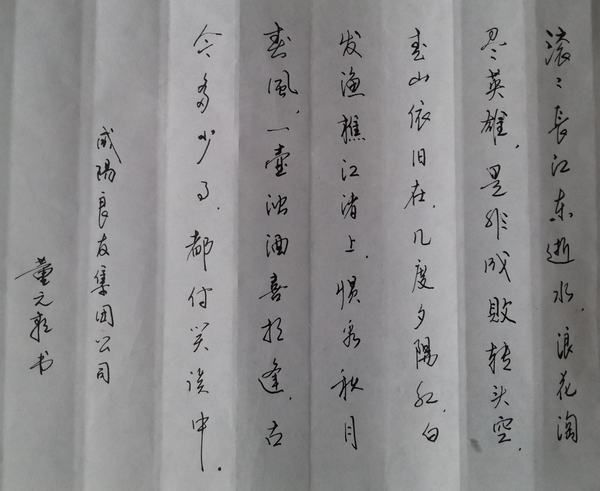 滚々長江东逝水.浪花淘
尽英雄.是非成敗转头空.
青山依旧在.几度夕陽红.白
发渔樵江渚上.惯看秋月
春風.一壶浊酒喜相逢.古
今多少事.都付笑谈中.
咸陽良友集团公司
董元书